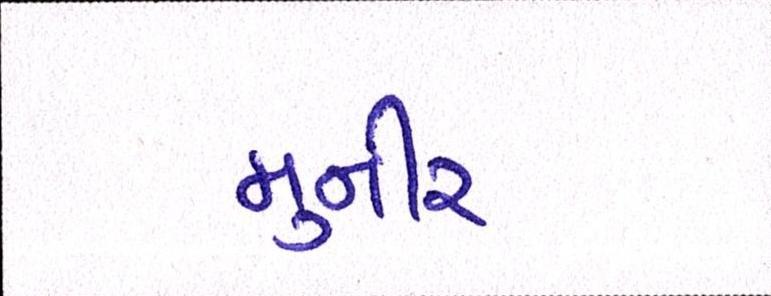 મુનીર